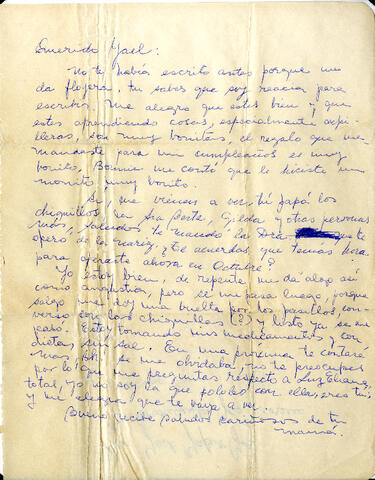 Querido Gael:
No te había escrito antes porque me
da flojera, tu sabes que soy reacia para
escribir. Me alegro que estes bien y que
estes aprendiendo cosas, especialmente arpi-
lleras, son muy bonitas, el regalo que me
mandaste para mi cumpleaños es muy
bonito, Bonnie me contó que le hiciste un
monito muy bonito.
Si, me vienen a ver, tú papá los
chiquillos, la Sra Berta, Gilda y otras personas
más, saludos te mando la Dra. que te
operó de la nariz, ¿Te acuerdas que tenías hora
para operarte ahora en Octubre?
Yo estoy bien, de repente me da algo así
como angustia, pero se me pasa luego, porque
salgo me doy una vuelta por los pasillos, con-
verso con las chiquillas (?) y listo ya se me
pasó. Estoy tomando mis medicamentos y con
dietas sin sal. En una próxima te contaré
mas, Ah! se me olvidaba, no te preocupes
por lo que me preguntas respecto a Luz Eliana,
total, yo no soy la que pololeo con ella, eres tú,
y me alegra que te vaya a ver.
Bueno recibe saludos cariñosos de tu
mamá.